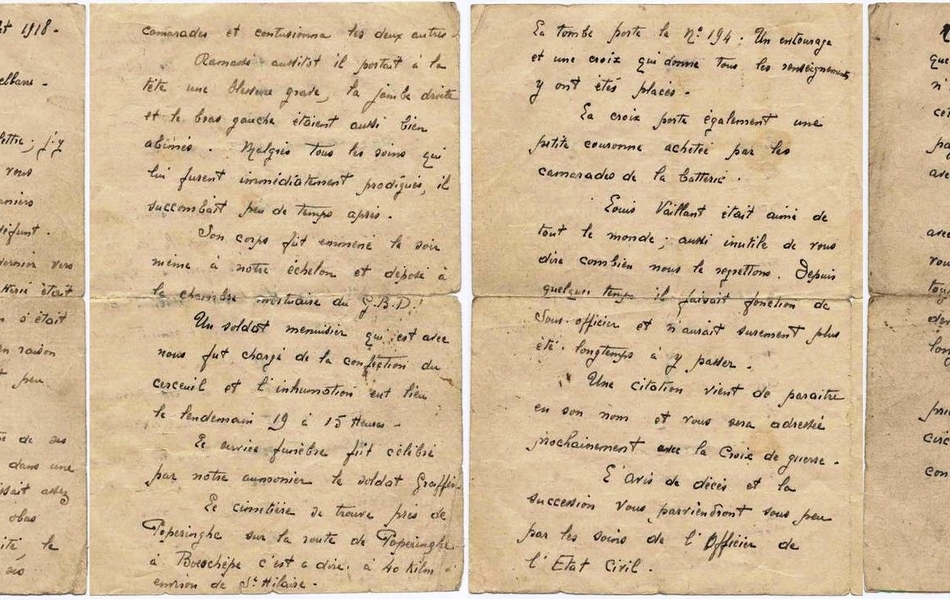 1918 -
elbare -
lettre ; j'y
vous
défunt .
vers
était
s'était
en raison
peu
de ses
dans une
assez
obus
le
ses
camarades et contusionna les deux autres .
Ramassé aussitôt il portait à la
tête une blessure grave, la jambe droite
et le bras gauche étaient aussi bien
abimés . Malgrés tous les soins qui
lui furent immédiatement prodigués, il
succombait peu de temps après .
Son corps fût emmené le soir
même à notre échelon et déposé à
la chambre mortuaire du G.B.D.
Un soldat menuisier qui est avec
nous fut chargé de la confection du
cerceuil et l'inhumation eut lieu
le lendemain 19 à 15 Heures -
Le service funèbre fût célébré
par notre aumonier le soldat
Le cimetière se trouve près de
Poperinghe sur la route de Poperinghe
à Boeschèpe c'est a dire à 40 Kilm
environ de St Hilaire .
La tombe porte le No 194 : Un entourage
et une croix qui donne tous les renseignements
y ont étés placés -
La croix porte également une
petite couronne achetée par les
camarades de la batterie .
Louis Vaillant était aimé de
tout le monde ; aussi inutile de vous
dire combien nous le regrettons . Depuis
quelques temps il faisait fonction de
Sous-officier et n'aurait surement plus
été longtemps à y passer .
Une citation vient de paraitre
en son nom et vous sera adressée
prochainement avec la Croix de guerre .
L'Avis de décès et la
succession vous parviendront sous peu
par les soins de l'Officier de
l'Etat Civil .
que
n'
avec
vous
con